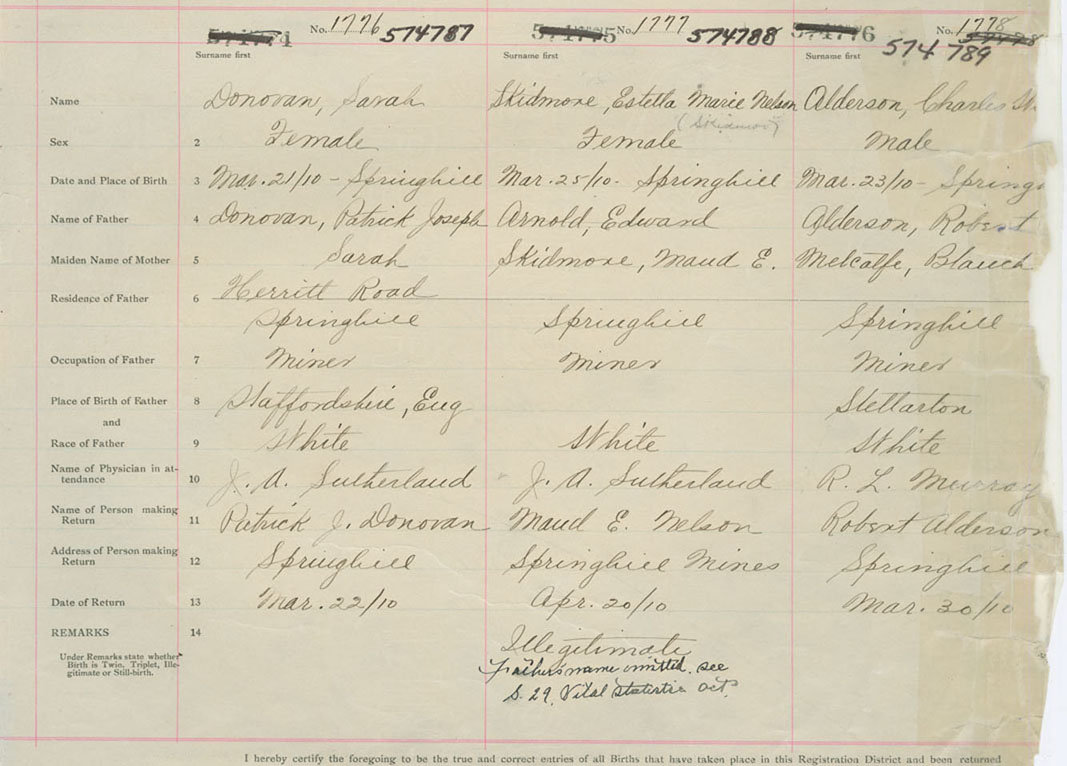 No. 1776 574787 No. 1777 574788 No. 1778
574 789
Surname first Surname first Surname first
Name Donovan, Sarah Skidmore, Estella Marie Nelson Alderson, Charles
(Skidmore)
Sex 2 Female Female Male
Date and Place of Birth 3 Mar. 21/10 - Springhill Mar. 25/10. Springhill Mar. 23/10 - Spring
Name of Father 4 Donovan, Patrick Joseph Arnold, Edward Alderson, Robert
Maiden Name of Mother 5 Sarah Skidmore, Maud E. Metcalfe, Blanch
Residence of Father 6 Herritt Road
Springhill Springhill Springhill
Occupation of Father 7 Miner Miner Miner
Place of Birth of Father 8 Staffordshire, Eng Stellarton
and
Race of Father 9 White White White
Name of Physician in at-
tendance 10 J. A. Sutherland J. A. Sutherland R. L. Murray
Name of Person making
Return 11 Patrick J. Donovan Maud E. Nelson Robert Alderson
Address of Person making
Return 12 Springhill Springhill Mines Springhill
Date of Return 13 Mar. 22/10 Apr. 20/10 Mar. 30/10
REMARKS 14 Illegitimate
Under Remarks state whether
Birth is Twin, Triplet, Ille-
gitimate or Still-birth.
Father's name omitted. see
S. 29, Vital Statistic Act.
I hereby certify the foregoing to be the true and correct entries of all Births that have taken place in this Registration District and been returned